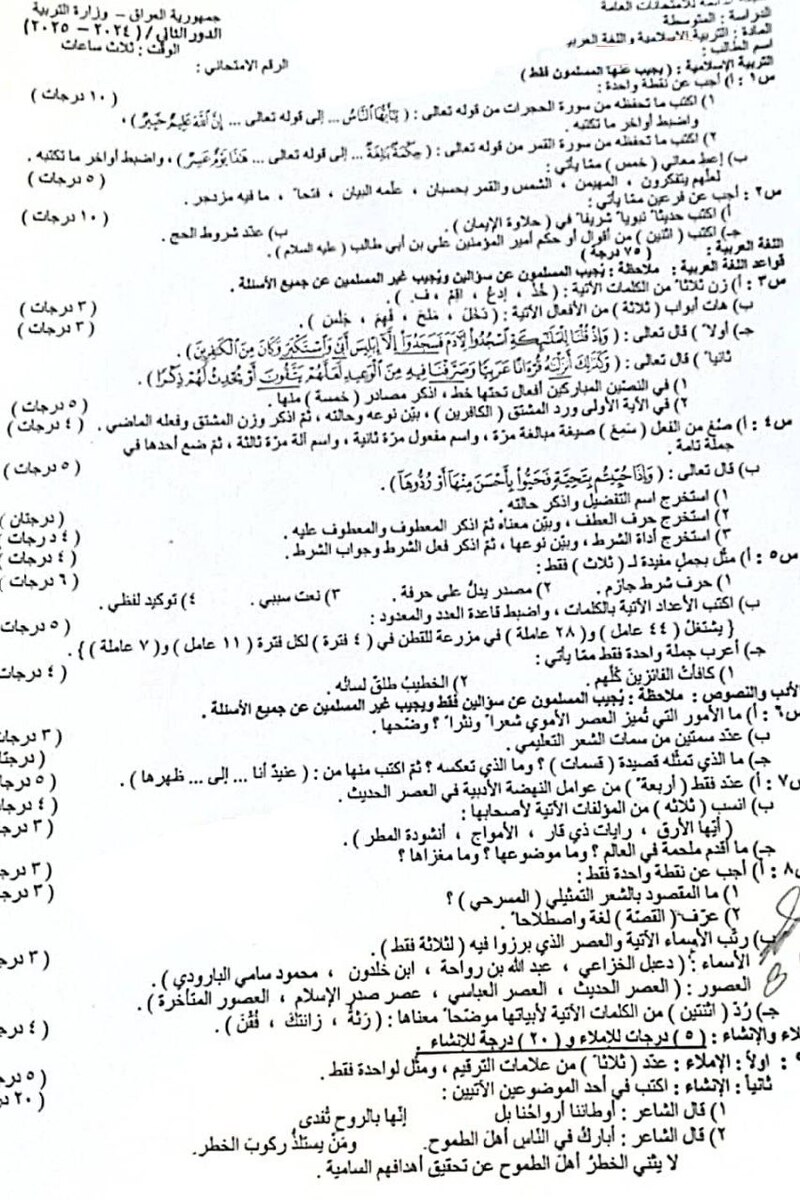 جمهورية العراق - وزارة التربية
الدور الثاني / ( ٢٠٢٤ - ٢٠٢٥ )
الوقت : ثلاث ساعات
الرقم الامتحاني :
للامتحانات العامة
الدراسة : المتوسطة
المادة : التربية الإسلامية واللغة العربي
اسم الطالب :
التربية الإسلامية : ( يجيب عنها المسلمون فقط )
س١ : أ) أجب عن نقطة واحدة : ( ١٠ درجات )
١) اكتب ما تحفظه من سورة الحجرات من قوله تعالى : ( يَٰٓأَيُّهَا ٱلنَّاسُ ... إلى قوله تعالى ... إِنَّ ٱللَّهَ عَلِيمٌ خَبِيرٌ ) ،
واضبط أواخر ما تكتبه .
٢) اكتب ما تحفظه من سورة القمر من قوله تعالى : ( حِكْمَةٌ بَٰلِغَةٌ ... إلى قوله تعالى ... هَٰذَا يَوْمٌ عَسِرٌ ) ، واضبط أواخر ما تكتبه .
ب) إعط معاني ( خمس ) ممّا يأتي : ( ٥ درجات )
لعلهم يتفكرون ، المهيمن ، الشمس والقمر بحسبان ، علّمه البيان ، فتحاً ، ما فيه مزدجر .
س٢ : أجب عن فرعين ممّا يأتي : ( ١٠ درجات )
أ) اكتب حديثاً نبوياً شريفاً في ( حلاوة الإيمان ) . ب) عدّد شروط الحج .
جـ) اكتب ( اثنين ) من أقوال أو حكم أمير المؤمنين علي بن أبي طالب ( عليه السلام ) .
اللغة العربية : ( ٧٥ درجة )
قواعد اللغة العربية : ملاحظة : يُجيب المسلمون عن سؤالين ويُجيب غير المسلمين عن جميع الأسئلة .
س٣ : أ) زن ثلاثاً من الكلمات الآتية : ( خُذْ ، إدعُ ، اقِمْ ، فِ . ) . ( ٣ درجات )
ب) هات أبواب ( ثلاثة ) من الأفعال الآتية : ( دَخَلَ ، مَلحَ ، فَهِمَ ، جَلَسَ ) . ( ٣ درجات )
جـ) أولاً ) قال تعالى : ( وَإِذْ قُلْنَا لِلْمَلَٰٓئِكَةِ ٱسْجُدُوا۟ لِـَٔادَمَ فَسَجَدُوٓا۟ إِلَّآ إِبْلِيسَ أَبَىٰ وَٱسْتَكْبَرَ وَكَانَ مِنَ ٱلْكَٰفِرِينَ ) .
ثانياً ) قال تعالى : ( وَكَذَٰلِكَ أَنزَلْنَٰهُ قُرْءَانًا عَرَبِيًّا وَصَرَّفْنَا فِيهِ مِنَ ٱلْوَعِيدِ لَعَلَّهُمْ يَتَّقُونَ أَوْ يُحْدِثُ لَهُمْ ذِكْرًا ) .
١) في النصّين المباركين أفعال تحتها خط، اذكر مصادر ( خمسة ) منها . ( ٥ درجات )
٢) في الآية الأولى ورد المشتق ( الكافرين ) ، بيّن نوعه وحالته ، ثم اذكر وزن المشتق وفعله الماضي . ( ٤ درجات )
س٤ : أ) صُغ من الفعل ( سَمِعَ ) صيغة مبالغة مرّة ، واسم مفعول مرّة ثانية ، واسم آلة مرّة ثالثة ، ثم ضع أحدها في
جملة تامة . ( ٥ درجات )
ب) قال تعالى : ( وَإِذَا حُيِّيتُم بِتَحِيَّةٍ فَحَيُّوا۟ بِأَحْسَنَ مِنْهَآ أَوْ رُدُّوهَآ ) .
١) استخرج اسم التفضيل واذكر حالته . ( درجتان )
٢) استخرج حرف العطف ، وبيّن معناه ثم اذكر المعطوف والمعطوف عليه . ( ٤ درجات )
٣) استخرج أداة الشرط ، وبيّن نوعها ، ثم اذكر فعل الشرط وجواب الشرط . ( ٤ درجات )
س٥ : أ) مثّل بجملٍ مفيدة لـ ( ثلاث ) فقط : ( ٦ درجات )
١) حرف شرط جازم . ٢) مصدر يدلّ على حرفة . ٣) نعت سببي . ٤) توكيد لفظي .
ب) اكتب الأعداد الآتية بالكلمات ، واضبط قاعدة العدد والمعدود : ( ٥ درجات
{ يشتغلُ ( ٤٤ عامل ) و( ٢٨ عاملة ) في مزرعة للقطن في ( ٤ فترة ) لكل فترة ( ١١ عامل ) و( ٧ عاملة ) } .
جـ) أعرب جملة واحدة فقط ممّا يأتي : ( ٤ درجات
١) كافأتُ الفائزينَ كُلَّهم . ٢) الخطيبُ طلقٌ لسانُه .
الأدب والنصوص : ملاحظة : يُجيب المسلمون عن سؤالين فقط ويجيب غير المسلمين عن جميع الأسئلة .
س٦ : أ) ما الأمور التي تُميز العصر الأموي شعراً ونثراً ؟ وضّحها . ( ٣ درجات
ب) عدّد سمتين من سمات الشعر التعليمي . ( درجتا
جـ) ما الذي تمثّله قصيدة ( قسمات ) ؟ وما الذي تعكسه ؟ ثم اكتب منها من : ( عنيدٌ أنا ... إلى ... ظهرها ) . ( ٥ درجا
س٧ : أ) عدّد فقط ( أربعة ) من عوامل النهضة الأدبية في العصر الحديث . ( ٤ درجا
ب) انسب ( ثلاثه ) من المؤلفات الآتية لأصحابها : ( ٣ درجا
( أيّها الأرق ، رايات ذي قار ، الأمواج ، أنشودة المطر ) .
جـ) ما أقدم ملحمة في العالم ؟ وما موضوعها ؟ وما مغزاها ؟ ( ٣ درجـ
س٨ : أ) أجب عن نقطة واحدة فقط : ( ٣ درجـ
١) ما المقصود بالشعر التمثيلي ( المسرحي ) ؟
٢) عرّف ( القصّة ) لغة واصطلاحاً .
ب) رتّب الأسماء الآتية والعصر الذي برزوا فيه ( لثلاثة فقط ) . ( ٣ درجـ
الأسماء : ( دعبل الخزاعي ، عبد الله بن رواحة ، ابن خلدون ، محمود سامي البارودي ) .
العصور : ( العصر الحديث ، العصر العباسي ، عصر صدر الإسلام ، العصور المتأخرة ) .
جـ) رُدّ ( اثنتين ) من الكلمات الآتية لأبياتها موضّحاً معناها : ( رَثةُ ، زانتكَ ، فَفُنَ ) . ( ٤ درجـ
لاء والإنشاء : ( ٥ ) درجات للإملاء و ( ٢٠ ) درجة للإنشاء .
: أولاً : الإملاء : عدّد ( ثلاثاً ) من علامات الترقيم ، ومثّل لواحدة فقط . ( ٥ درجـ
ثانياً : الإنشاء : اكتب في أحد الموضوعين الآتيين : ( ٢٠ در
١) قال الشاعر : أوطاننا أرواحُنا بل إنّها بالروح تُفدى
٢) قال الشاعر : أبارك في النّاس أهلَ الطموح. ومَنْ يستلذُّ ركوبَ الخطر.
لا يثني الخطرُ أهلَ الطموح عن تحقيق أهدافهم السامية .